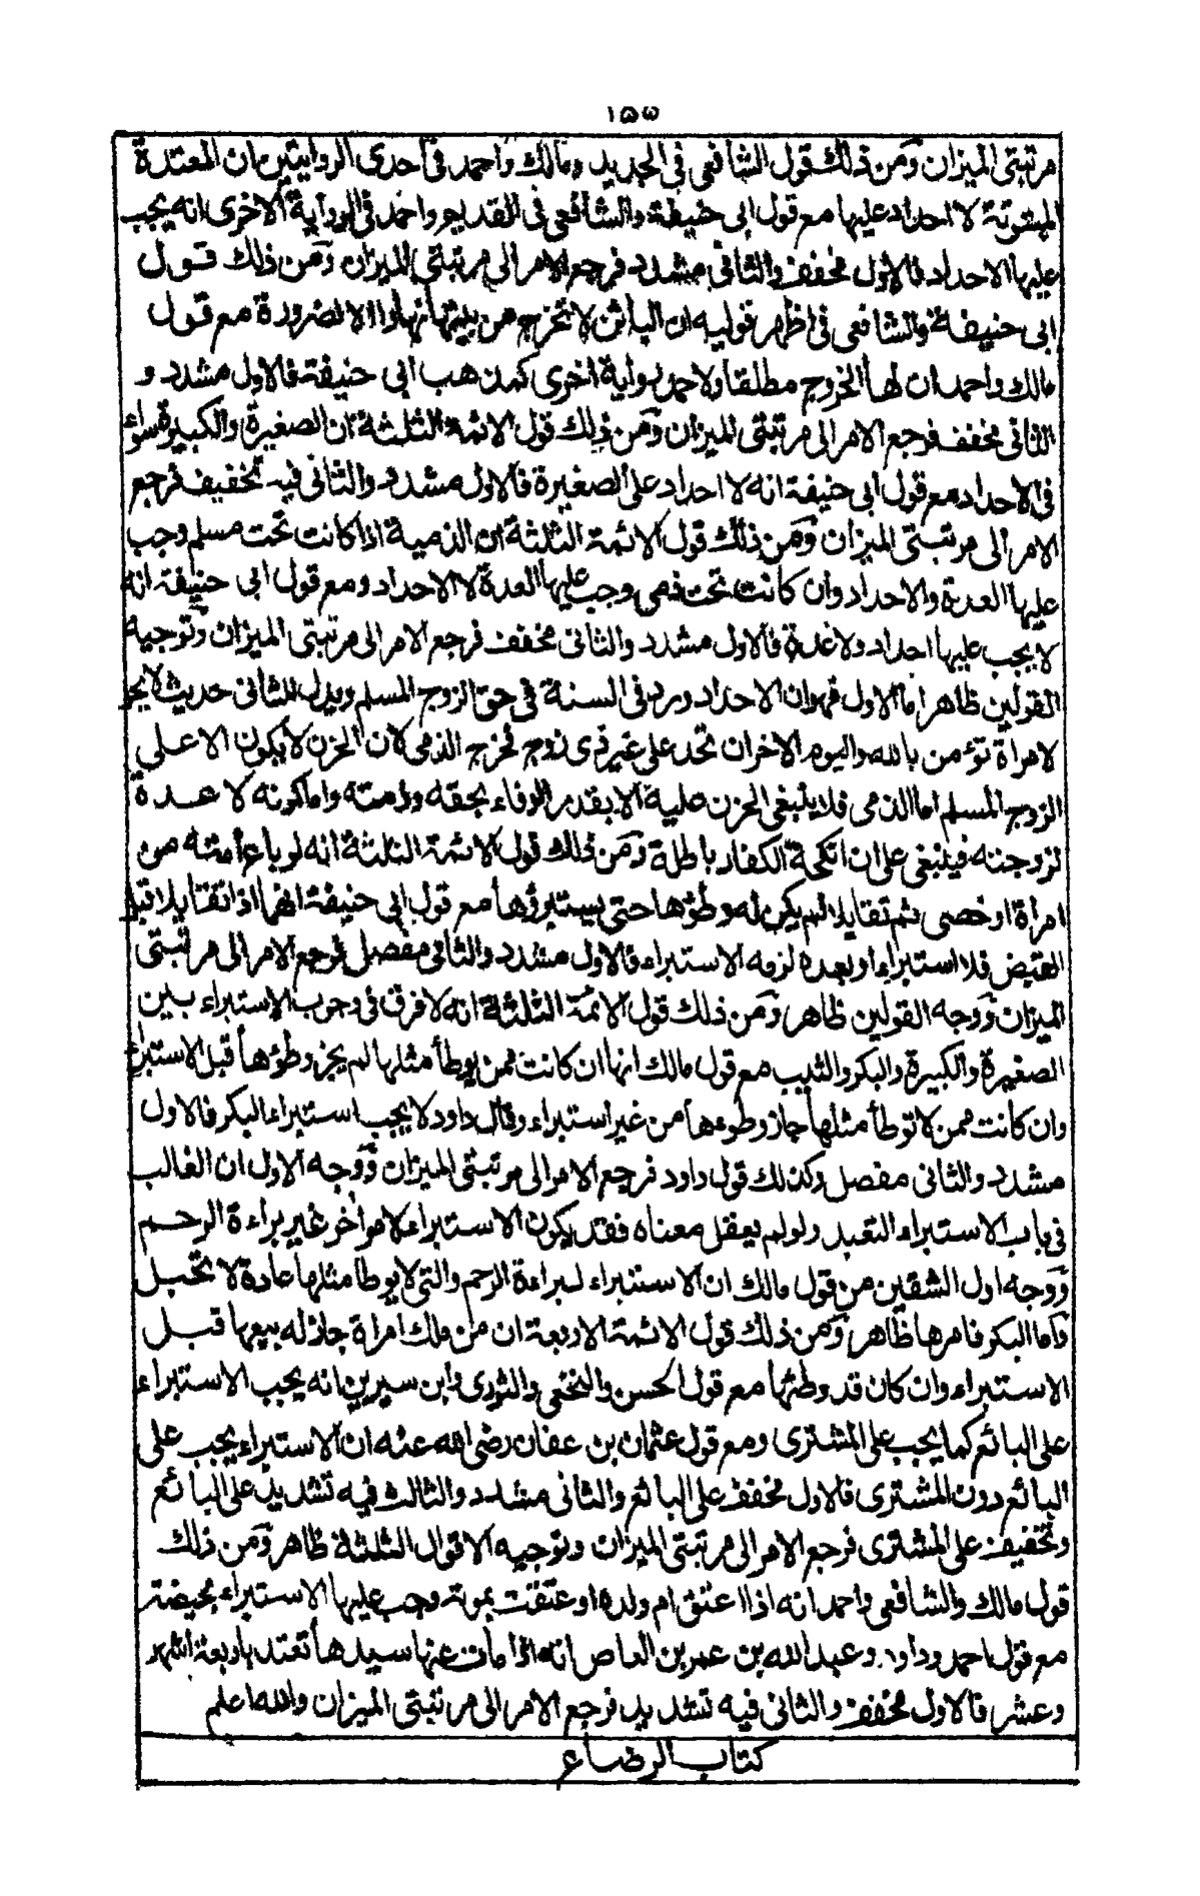 ١٥٧
مرتبتى الميزان ومن ذلك قول الشافعى فى الجديد ومالك واحمد فى احدى الروايتين ان المعتدة
المبتوتة لا احداد عليها مع قول ابى حنيفة والشافعى فى القديم واحمد فى الرواية الاخرى انه يجب
عليها الاحداد فالاول مخفف والثانى مشدد فرجع الامر الى مرتبتى الميزان ومن ذلك قول
ابى حنيفة والشافعى فى اظهر قوليه ان البائن لا تخرج من بيتها نهارا الا لضرورة مع قول
مالك واحمد ان لها الخروج مطلقا ولاحمد رواية اخرى كمذهب ابى حنيفة فالاول مشدد و
الثانى مخفف فرجع الامر الى مرتبتى الميزان ومن ذلك قول الائمة الثلثة ان الصغيرة والكبيرة سواء
فى الاحداد مع قول ابى حنيفة انه لا احداد على الصغيرة فالاول مشدد والثانى فيه تخفيف فرجع
الامر الى مرتبتى الميزان ومن ذلك قول الائمة الثلثة ان الذمية اذا كانت تحت مسلم وجب
عليها العدة والاحداد وان كانت تحت ذمى وجب عليها العدة لا الاحداد ومع قول ابى حنيفة انه
لا يجب عليها احداد ولا عدة فالاول مشدد والثانى مخفف فرجع الامر الى مرتبتى الميزان وتوجيه
القولين ظاهر اما الاول فهو ان الاحداد ورد فى السنة فى حق الزوج المسلم ويدل للثانى حديث لا يحل
لامراة تؤمن بالله واليوم الاخر ان تحد على غير ذى زوج فخرج الذمى لان الحزن لا يكون الا على
الزوج المسلم اما الذمى فلا ينبغى الحزن عليه الا بقدر الوفاء بحقه وذمته واما كونه لا عدة
لزوجته فينبغى على ان انكحة الكفار باطلة ومن ذلك قول الائمة الثلثة انه لو باع امته من
امراة او خصى ثم تقايلا لم يكن له وطؤها حتى يستبرؤها مع قول ابى حنيفة انهما اذا تقايلا قبل
القبض فلا استبراء او بعده لزمه الاستبراء فالاول مشدد والثانى مفصل فرجع الامر الى مرتبتى
الميزان ووجه القولين ظاهر ومن ذلك قول الائمة الثلثة انه لا فرق فى وجوب الاستبراء بين
الصغيرة والكبيرة والبكر والثيب مع قول مالك انها ان كانت ممن يوطأ مثلها لم يجز وطؤها قبل الاستبراء
وان كانت ممن لا توطأ مثلها جاز وطوءها من غير استبراء وقال داود لا يجب استبراء البكر فالاول
مشدد والثانى مفصل وكذلك قول داود فرجع الامر الى مرتبتى الميزان ووجه الاول ان الغالب
فى باب الاستبراء التعبد ولو لم يعقل معناه فقد يكون الاستبراء لامر اخر غير براءة الرحم
ووجه اول الشقين من قول مالك ان الاستبراء لبراءة الرحم والتى لا يوطأ مثلها عادة لا تحبل
واما البكر فامرها ظاهر ومن ذلك قول الائمة الاربعة ان من ملك امراة جاز له بيعها قبل
الاستبراء وان كان قد وطئها مع قول الحسن والنخعى والثورى وابن سيرين انه يجب الاستبراء
على البائع كما يجب على المشترى ومع قول عثمان بن عفان رضى الله عنه ان الاستبراء يجب على
البائع دون المشترى فالاول مخفف على البائع والثانى مشدد والثالث فيه تشديد على البائع
وتخفيف على المشترى فرجع الامر الى مرتبتى الميزان وتوجيه الاقوال الثلثة ظاهر ومن ذلك
قول مالك والشافعى واحمد انه اذا اعتق ام ولده او عتقت بموته وجب عليها الاستبراء بحيضة
مع قول احمد وداود وعبد الله بن عمر بن العاص انه اذا مات عنها سيدها تعتد باربعة اشهر
وعشر فالاول مخفف والثانى فيه تشديد فرجع الامر الى مرتبتى الميزان والله اعلم
كتاب الرضاع